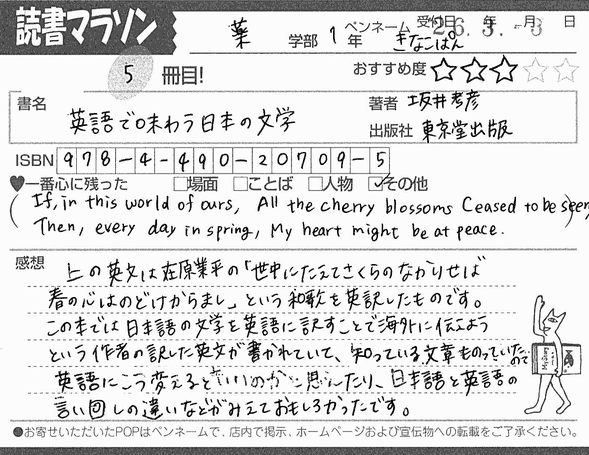 読書マラソン
薬 学部 1 年 ペンネーム きなこぱん 受付日 26.3.-3 年 月 日
5 冊目! おすすめ度 ☆☆☆☆☆
書名 英語で味わう日本の文学 著者 坂井孝彦
出版社 東京堂出版
ISBN 978-4-490-20709-5
♥一番心に残った □場面 □ことば □人物 ☑その他
(If, in this world of ours, All the cherry blossoms Ceased to be seen)
Then, every day in spring, My heart might be at peace.
感想 上の英文は在原業平の「世中にたえてさくらのなかりせば
春の心はのどけからまし」という和歌を英訳したものです。
この本では日本語の文学を英語に訳すことで海外に伝えよう
という作者の訳した英文が書かれていて、知っている文章ものっていたので
英語にこう変えると いいのかと思ったり、日本語と英語の
言い回しの違いなどがみえておもしろかったです。
●お寄せいただいたPOPはペンネームで、店内で掲示、ホームページおよび宣伝物への転載をご了承ください。